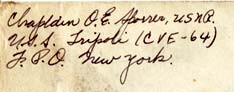 Chaplain O. E. Sporrer, USNR.
U.S.S. Tripoli (CVE-64)
F. P. O. New York.